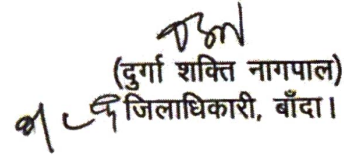 (दुर्गा शक्ति नागपाल)
जिलाधिकारी, बाँदा।